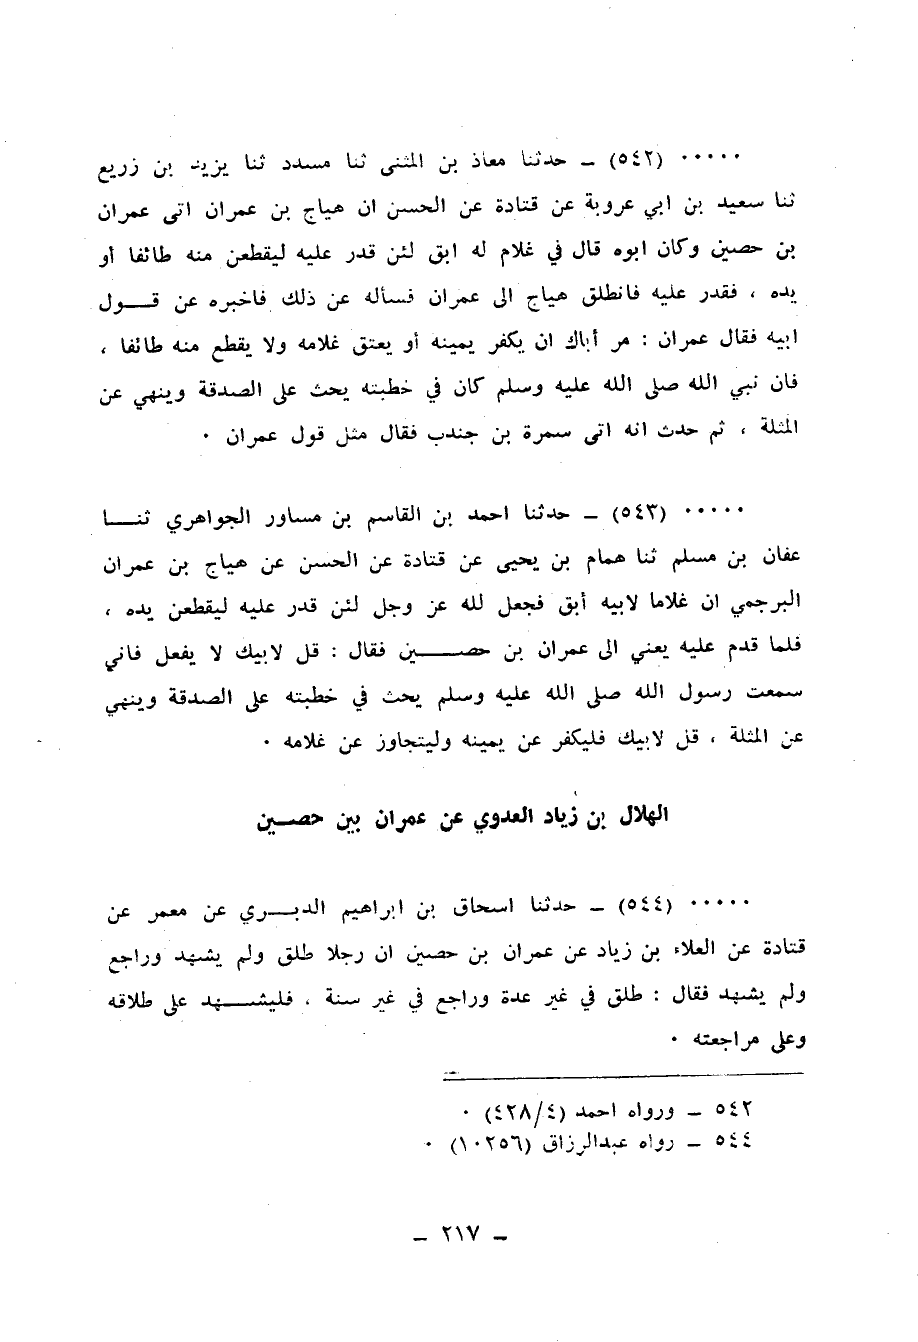 ٠٠٠٠٠ (٥٤٢) ــ حدثنا معاذ بن المثنى ثنا مسدد ثنا يزيد بن زريع
ثنا سعيد بن ابي عروبة عن قتادة عن الحسن ان هياج بن عمران اتى عمران
بن حصين وكان ابوه قال في غلام له ابق لئن قدر عليه ليقطعن منه طائفا أو
يده ، فقدر عليه فانطلق هياج الى عمران فسأله عن ذلك فاخبره عن قـــول
ابيه فقال عمران : مر أباك ان يكفر يمينه أو يعتق غلامه ولا يقطع منه طائفا ،
فان نبي الله صلى الله عليه وسلم كان في خطبته يحث على الصدقة وينهي عن
المثلة ، ثم حدث انه اتى سمرة بن جندب فقال مثل قول عمران ٠
٠٠٠٠٠ (٥٤٣) ــ حدثنا احمد بن القاسم بن مساور الجواهري ثنـــا
عفان بن مسلم ثنا همام بن يحيى عن قتادة عن الحسن عن هياج بن عمران
البرجمي ان غلاما لابيه أبق فجعل لله عز وجل لئن قدر عليه ليقطعن يده ،
فلما قدم عليه يعني الى عمران بن حصـــــين فقال : قل لابيك لا يفعل فاني
سمعت رسول الله صلى الله عليه وسلم يحث في خطبته على الصدقة وينهي
عن المثلة ، قل لابيك فليكفر عن يمينه وليتجاوز عن غلامه ٠
الهلال بن زياد العدوي عن عمران بين حصـــين
٠٠٠٠٠ (٥٤٤) ــ حدثنا اسحاق بن ابراهيم الدبـــري عن معمر عن
قتادة عن العلاء بن زياد عن عمران بن حصين ان رجلا طلق ولم يشهد وراجع
ولم يشهد فقال : طلق في غير عدة وراجع في غير سنة ، فليشـــهد على طلاقه
وعلى مراجعته ٠
٥٤٢ ــ ورواه احمد (٤/٤٢٨) ٠
٥٤٤ ــ رواه عبدالرزاق (١٠٢٥٦) ٠
ــ ٢١٧ ــ